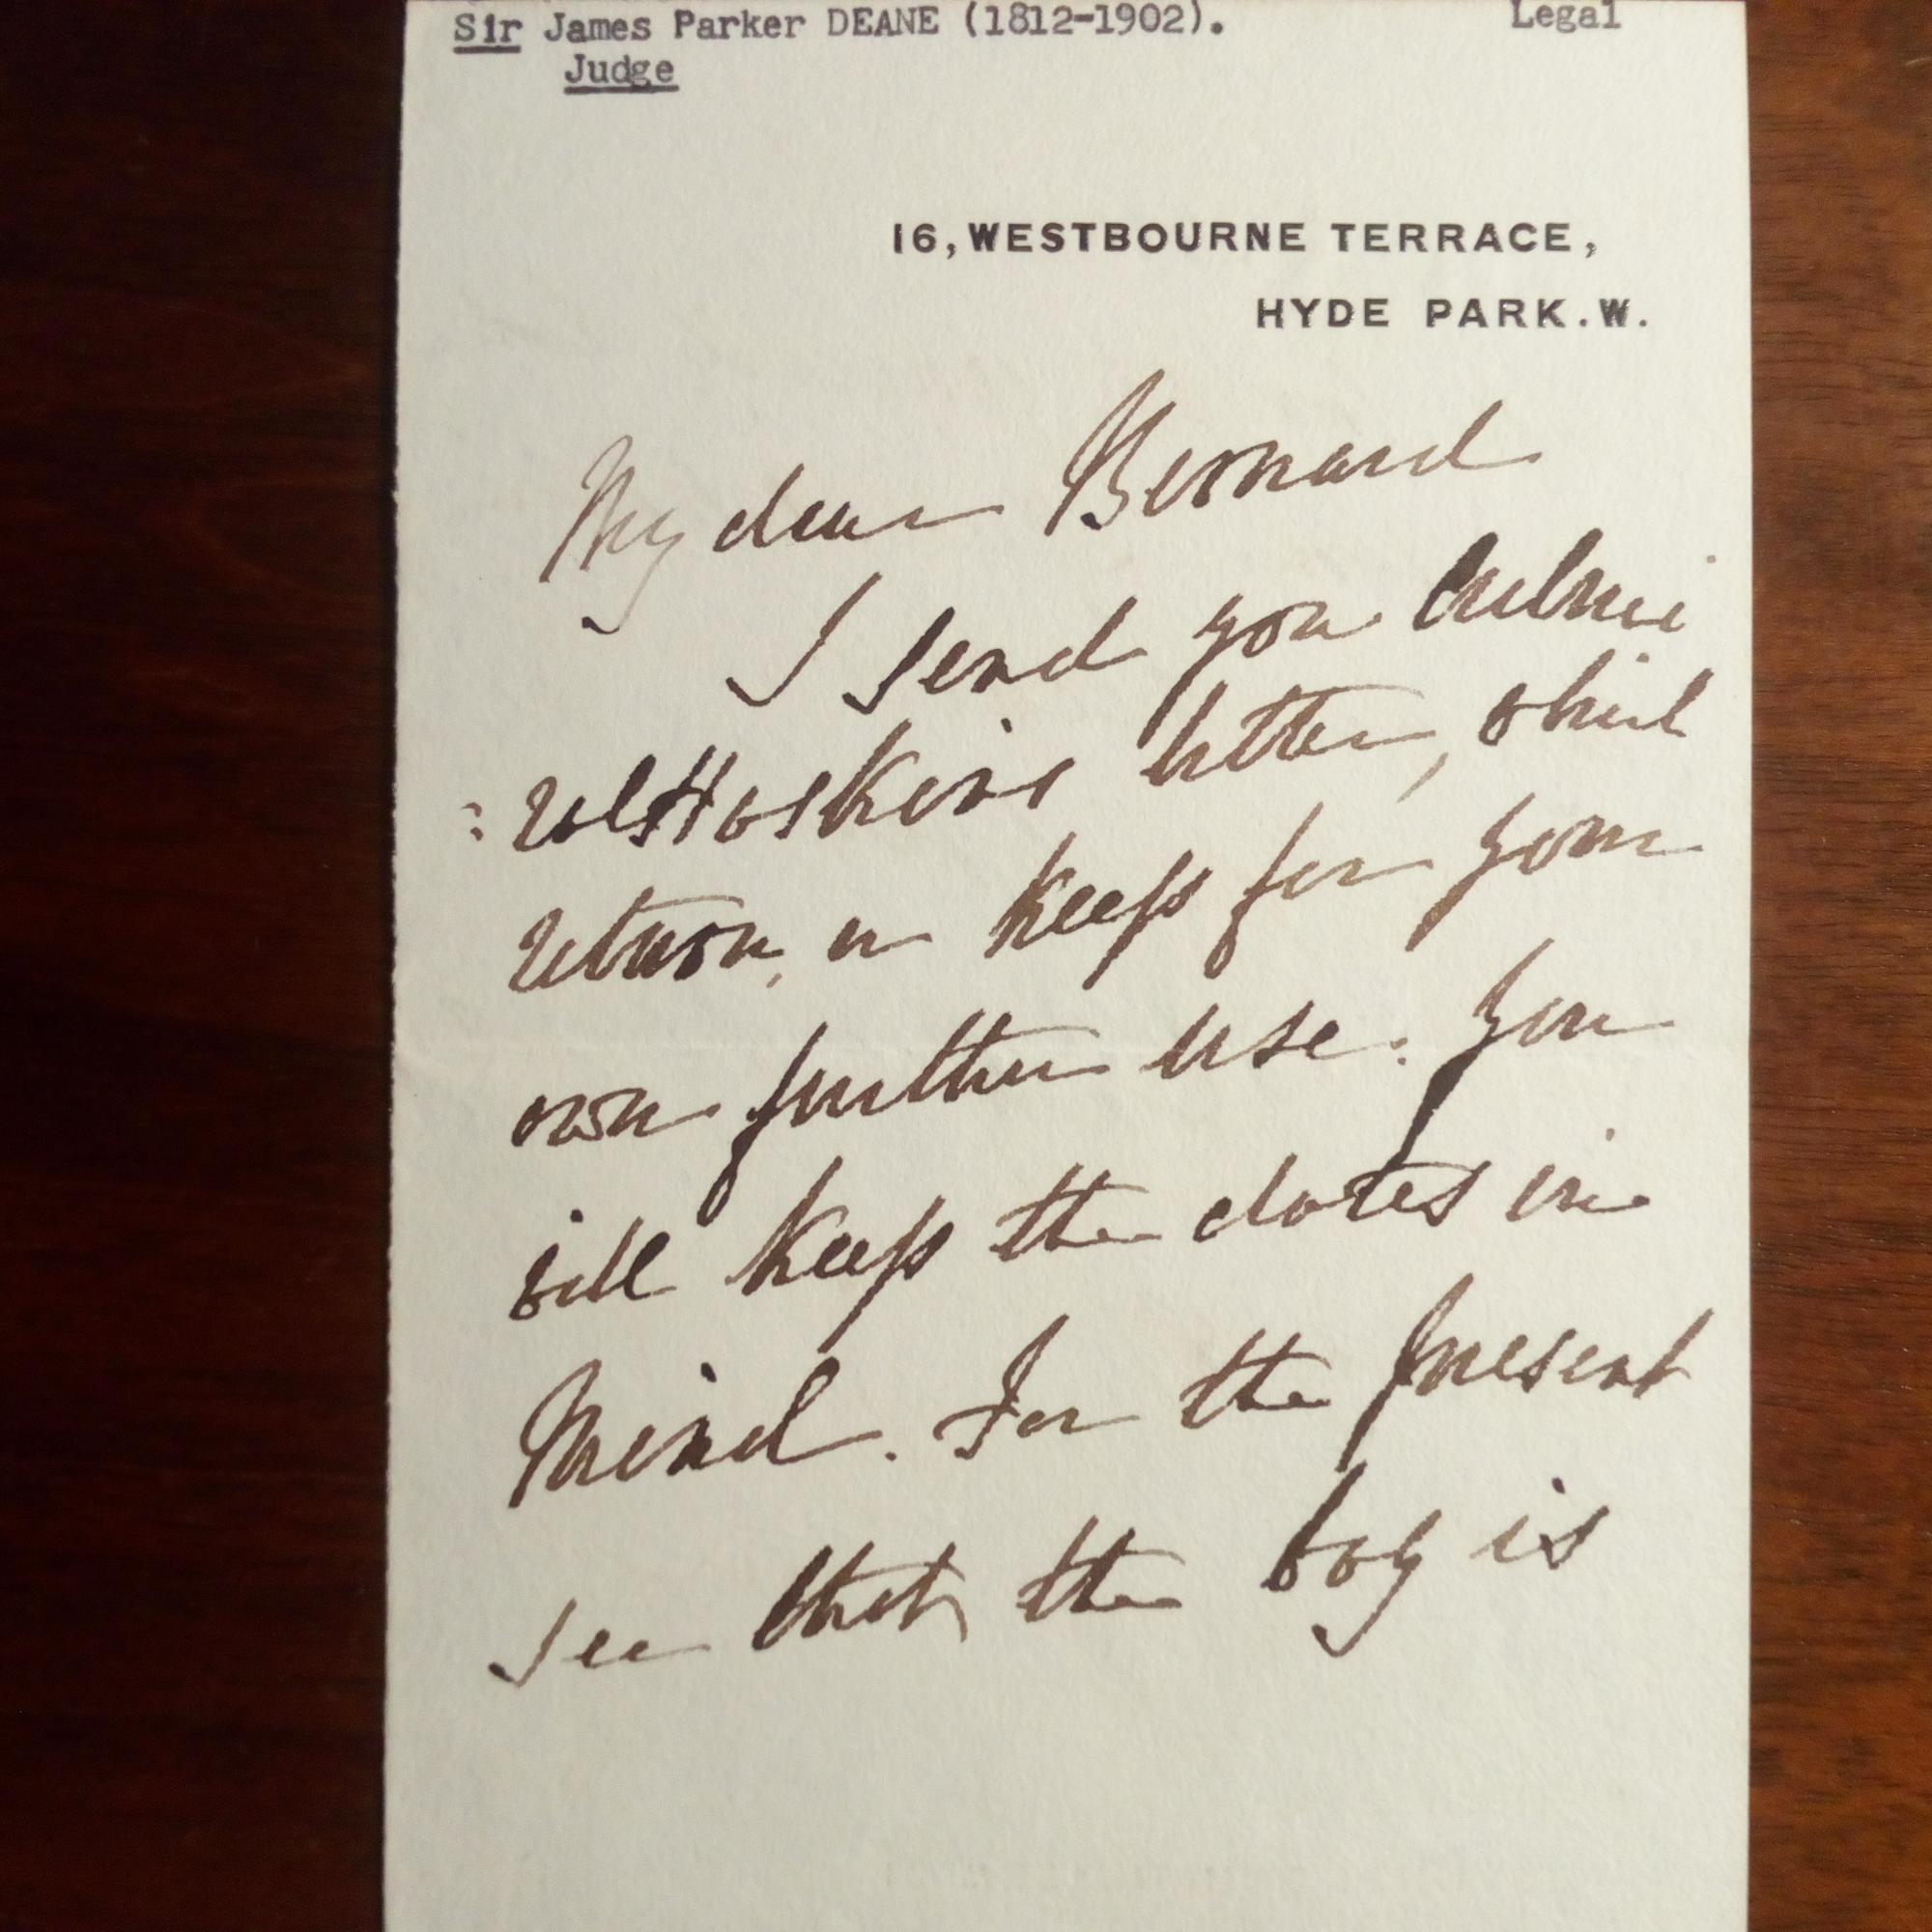 Sir James Parker DEANE (1812-1902). Legal
Judge
16, WESTBOURNE TERRACE,
HYDE PARK. W.
My dear Bernard
I send you Admi
: ral Hoskins letter, which
return, or keep for your
own further use: you
will keep the dates in
mind. For the present
see that the boy is